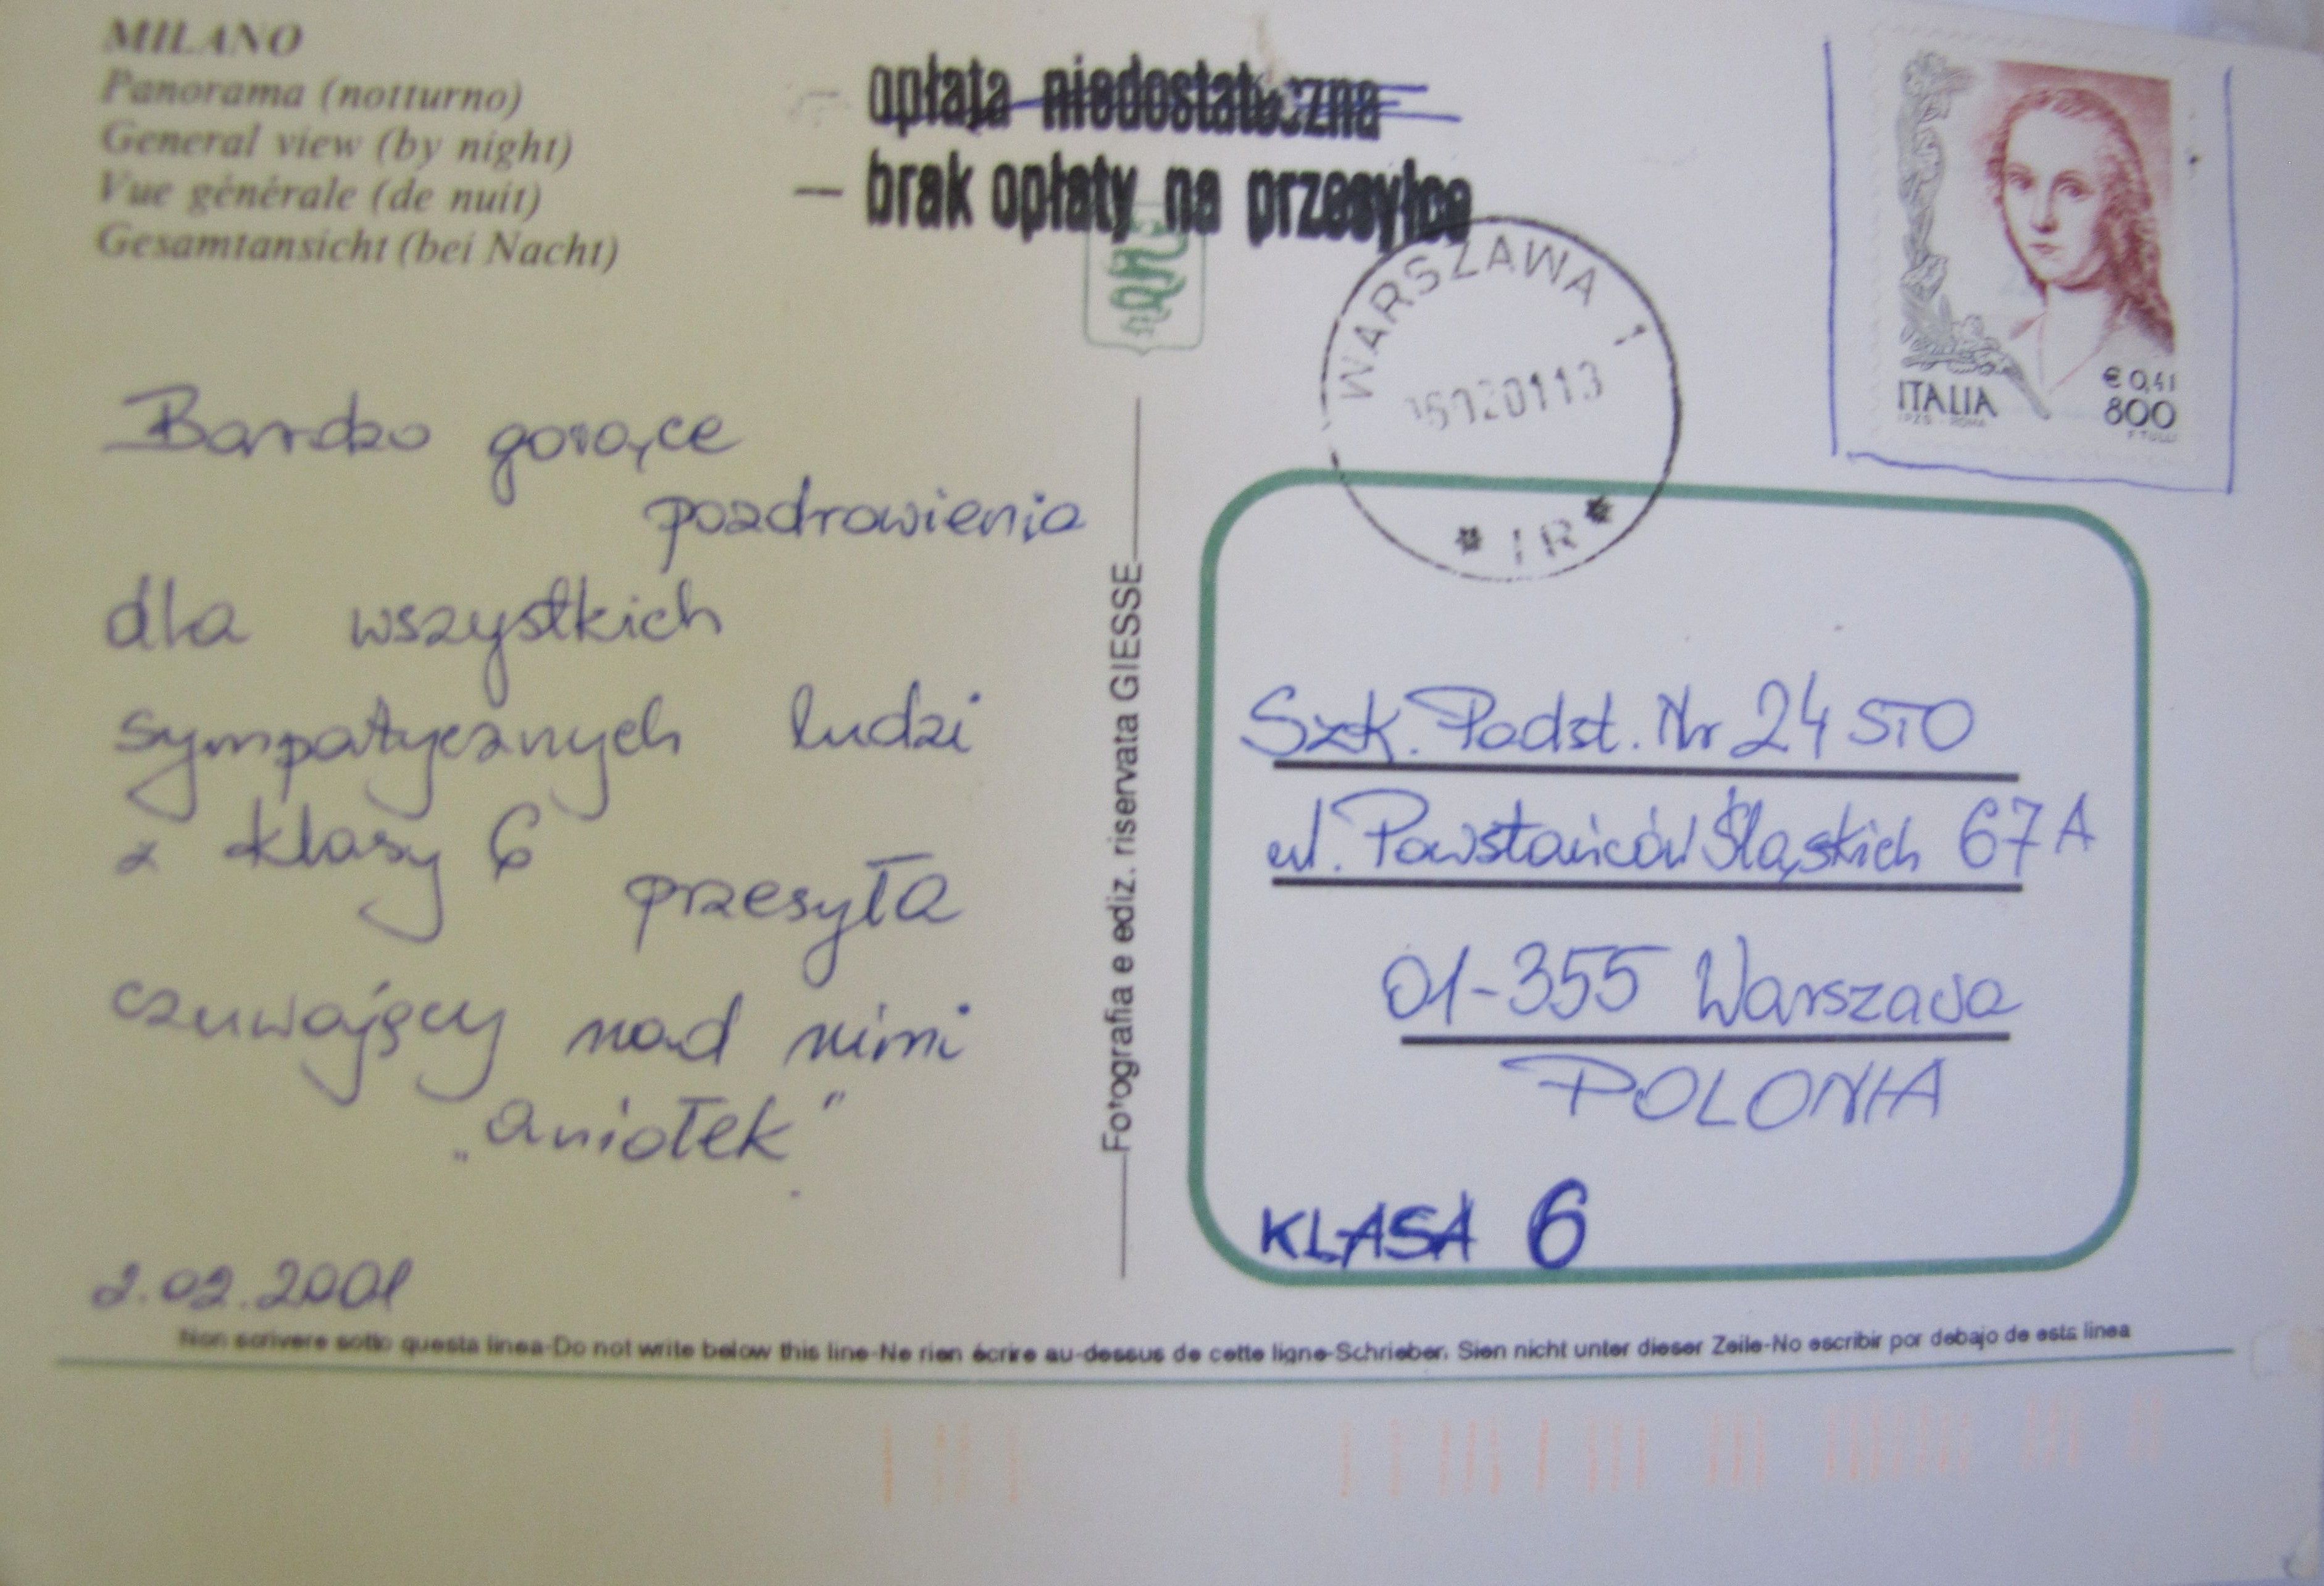 MILANO
Panorama (notturno)
General view (by night)
Vue générale (de nuit)
Gesamtansicht (bei Nacht)
– opłata niedostateczna
— brak opłaty na przesyłce
WARSZAWA 1
* IR *
ITALIA
€ 0,41
800
Bardzo gorące
pozdrowienia
dla wszystkich
sympatycznych ludzi
z klasy 6
przesyła
czuwający nad nimi
„aniołek”
2.02.2001
Fotografia e ediz. riservata GIESSE
Szk. Podst. Nr 24 STO
ul. Powstańców Śląskich 67A
01-355 Warszawa
POLONIA
KLASA 6
Non scrivere sotto questa linea-Do not write below this line-Ne rien écrire au-dessus de cette ligne-Schrieber. Sien nicht unter dieser Zeile-No escribir por debajo de esta linea